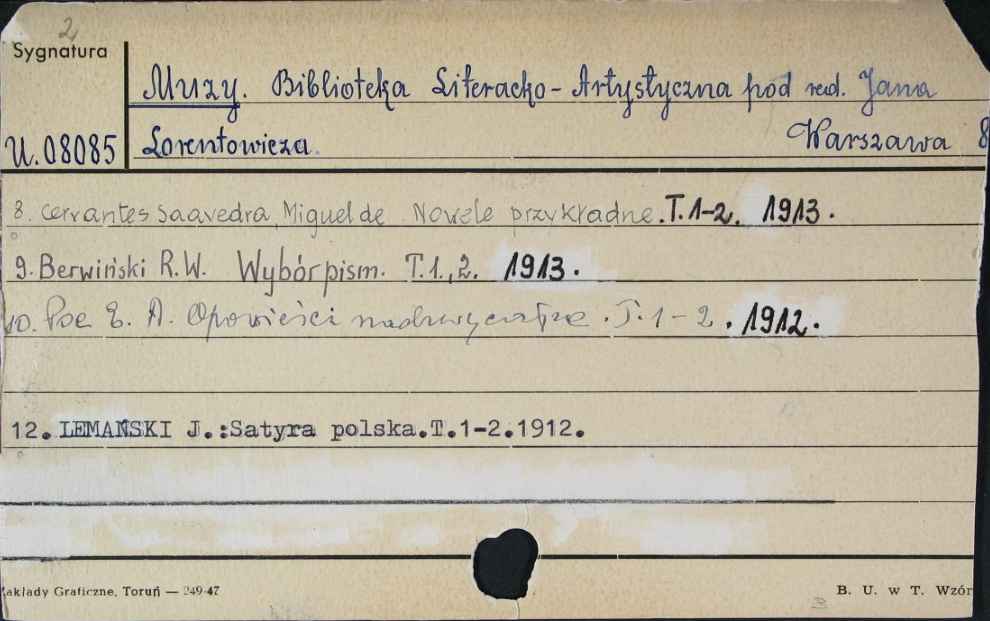 2
Sygnatura
Muzy. Biblioteka Literacko-Artystyczna pod red. Jana
U.08085 Lorentowicza. Warszawa 8
8. Cerrantes Saavedra, Miguel de Nowele przykładne. T.1-2. 1913.
9. Berwiński R.W. Wybór pism. T.1.,2. 1913.
10. Poe E. A. Opowieści nadzwyczajne. T.1-2. 1912.
12. LEMAŃSKI J.:Satyra polska.T.1-2.1912.
akłady Graficzne, Toruń — 249-47 B. U. w T. Wzór